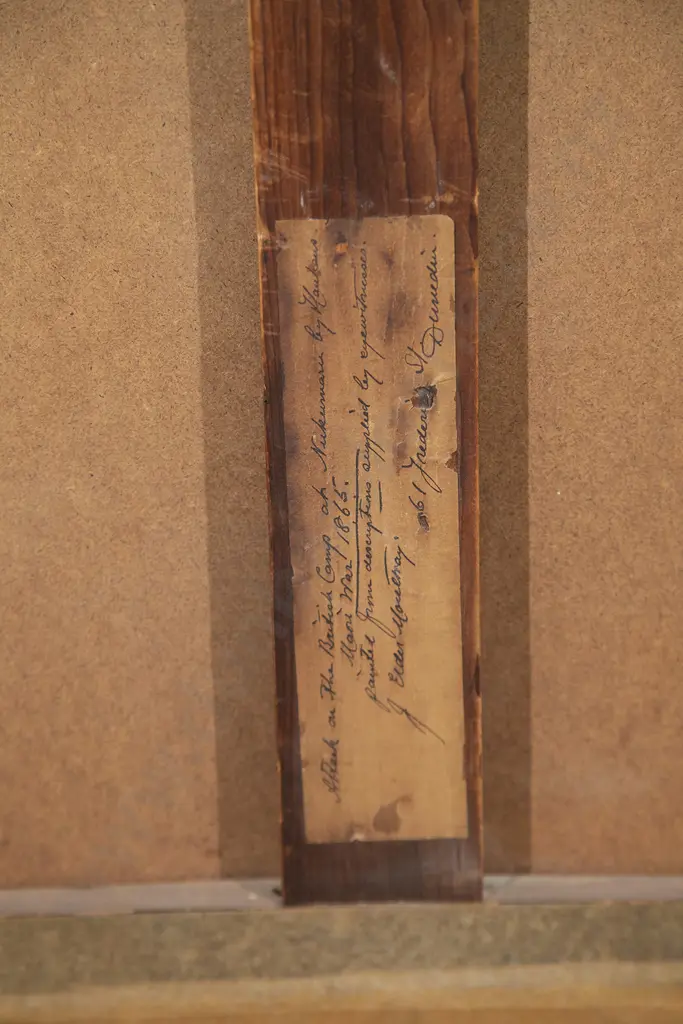 Attack on the British Camp at Nukumaru by Hauhaus
Maori War 1865.
Painted from descriptions supplied by eyewitnesses.
J Elder Moultray.
61 Frederick St Dunedin.